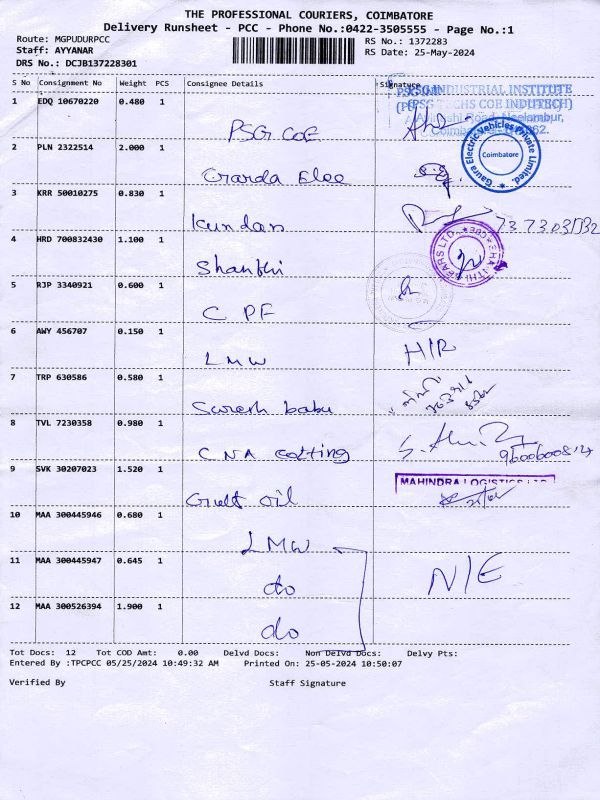 THE PROFESSIONAL COURIERS, COIMBATORE
Delivery Runsheet - PCC - Phone No.:0422-3505555 - Page No.:1
Route: MGPUDURPCC
RS No.: 1372283
Staff: AYYANAR
RS Date: 25-May-2024
DRS No.: DCJB137228301
S No Consignment No Weight PCS Consignee Details Signature
PSG INDUSTRIAL INSTITUTE
(PSG TECHS COE INDUTECH)
Avinashi Road, Neelambur,
1 EDQ 10670220 0.480 1 PSG COE
2 PLN 2322514 2.000 1
Gaura Electric Vehicles Private Limited.
Coimbatore
3 KRR 50010275 0.830 1 Kundan
4 HRD 700832430 1.100 1 Shanthi
5 RJP 3340921 0.600 1 C PF
6 AWY 456707 0.150 1 LMW H/R
7 TRP 630586 0.580 1 Suresh babu
8 TVL 7230358 0.980 1 CNA
9 SVK 30207023 1.520 1 Gulf oil
MAHINDRA LOGISTICS LTD
10 MAA 300445946 0.680 1 LMW
11 MAA 300445947 0.645 1 do N/E
12 MAA 300526394 1.900 1 do
Tot Docs: 12 Tot COD Amt: 0.00 Delvd Docs: Non Delvd Docs: Delvy Pts:
Entered By :TPCPCC 05/25/2024 10:49:32 AM Printed On: 25-05-2024 10:50:07
Verified By Staff Signature